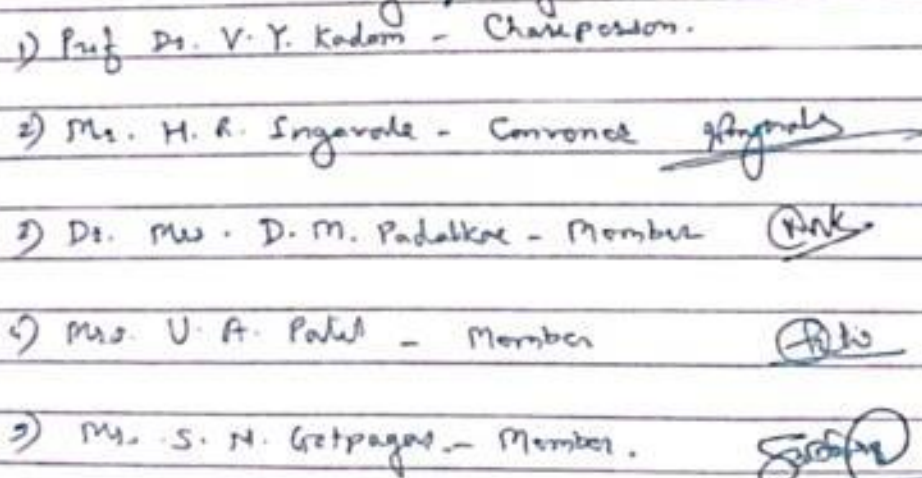 1) Prof Dr. V. Y. Kadam - Chairperson.
2) Mr. H. R. Ingavale - Convener
3) Dr. Mrs. D. M. Padalkar - Member
4) Mrs. U. A. Patil - Member
5) Mr. S. N. Getpagar - Member.